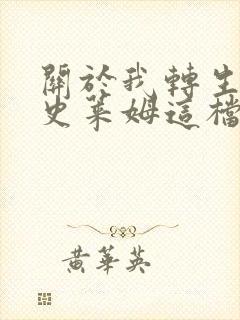 關於我轉生
史萊姆這檔
黃華英